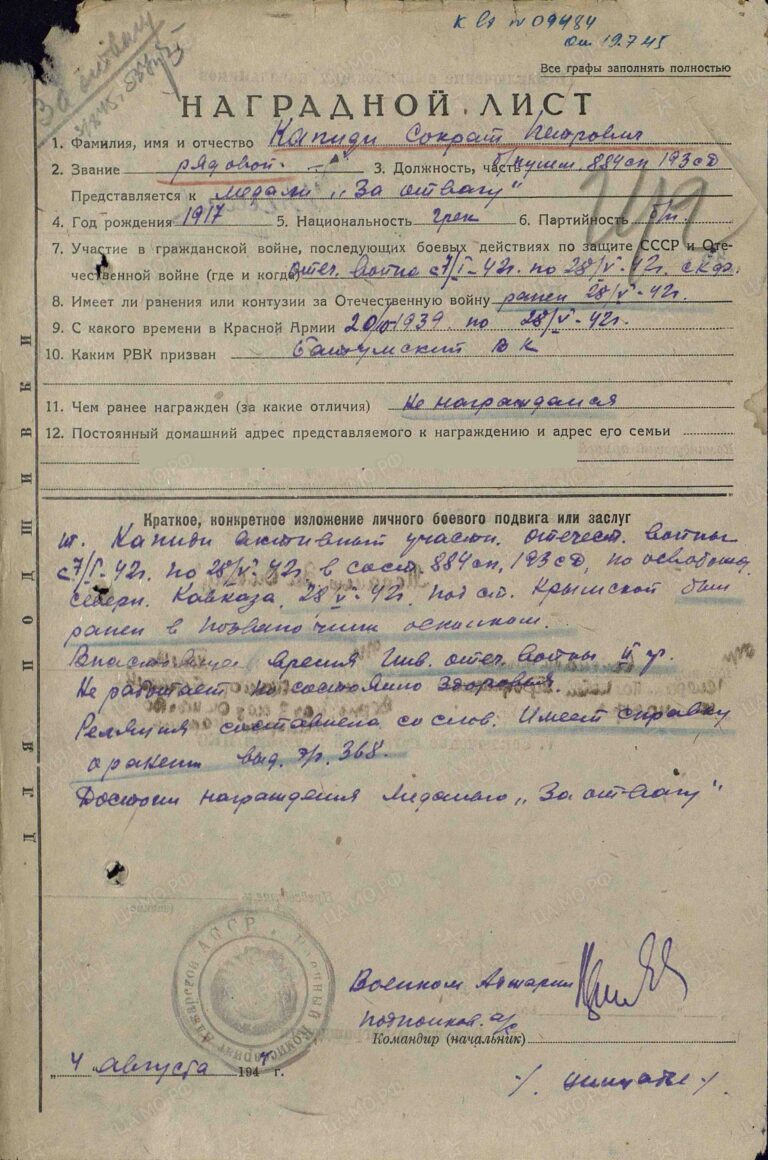 За отвагу
к вх № 09484
от 19.7.45
Все графы заполнять полностью
НАГРАДНОЙ ЛИСТ
1. Фамилия, имя и отчество Капиди Сократ Петрович
2. Звание рядовой. 3. Должность, часть 884сп 193сд
Представляется к медали „За отвагу"
4. Год рождения 1917 5. Национальность грек 6. Партийность б/п.
7. Участие в гражданской войне, последующих боевых действиях по защите СССР и Оте-
чественной войне (где и когда) отеч. война с 7/I-42г. по 28/V-42г. скф.
8. Имеет ли ранения или контузии за Отечественную войну ранен 28/V-42г.
9. С какого времени в Красной Армии 1939. по 28/V-42г.
10. Каким РВК призван Батумский ВК
11. Чем ранее награжден (за какие отличия) Не награждался
12. Постоянный домашний адрес представляемого к награждению и адрес его семьи
ДЛЯ ПОДШИВКИ
Краткое, конкретное изложение личного боевого подвига или заслуг
т. Капиди активный участн. отечест. войны
с 7/I-42г. по 28/V-42г. в сост. 884сп, 193сд, по освобожд.
северн. Кавказа, 28/V-42г. под ст. Крымской был
ранен в позвоночник осколком.
В настоящее время Инв. отеч. войны II гр.
Не работает по состоянию здоровья.
Реляция составлена со слов. Имеет справку
о ранении выд. э/г. 368.
Достоин награждения Медалью „За отвагу"
Военком Аджарии
подполковн. а/с
Командир (начальник)
„4 августа 194 г.